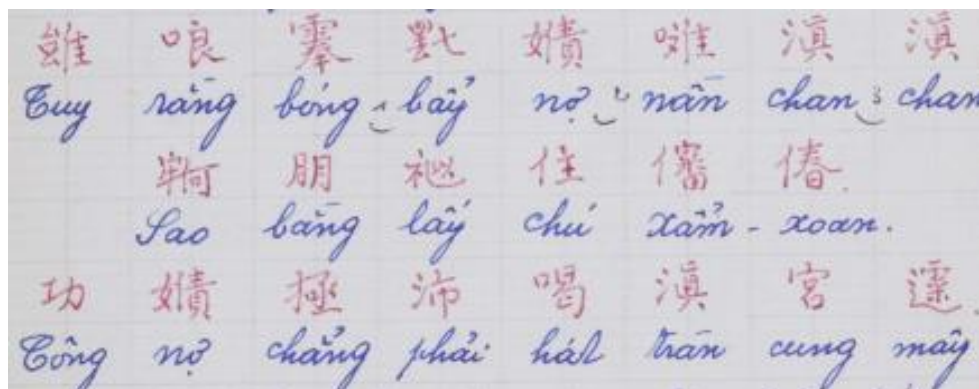 雖 哴 滇 滇
Tuy rằng bóng - bẩy nợ nần chan chan
朋 𥙩 住 偆
Sao bằng lấy chú xẩm - xoan.
功 沛 喝 滇 宮
Công nợ chẳng phải hát tràn cung mây